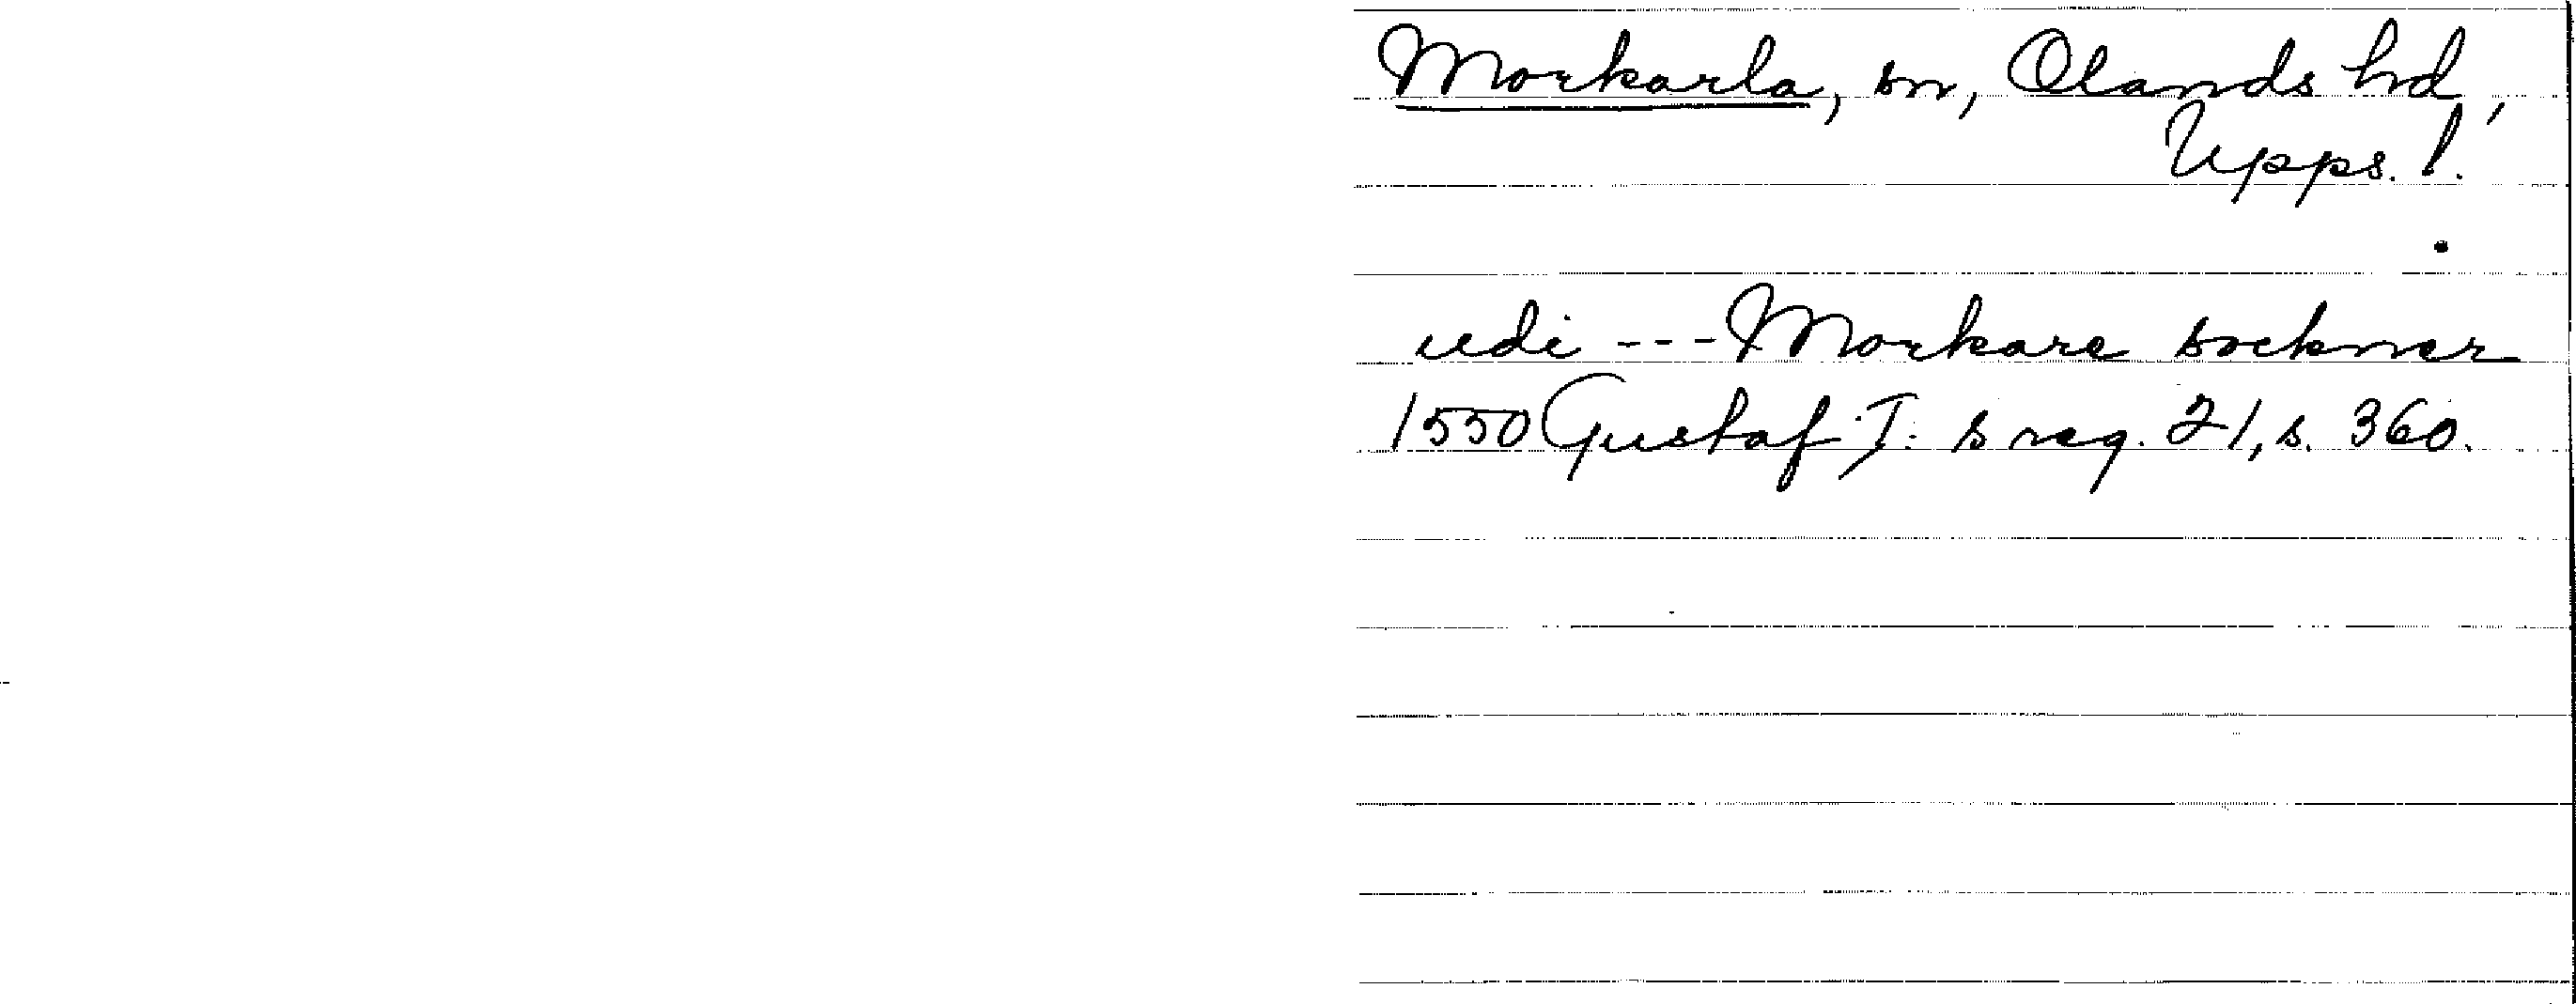 Morkarla, sn, Olands hd,
Upps. l.
udi --- Morkare sockner
1550 Gustaf I: s reg. 21, s. 360.